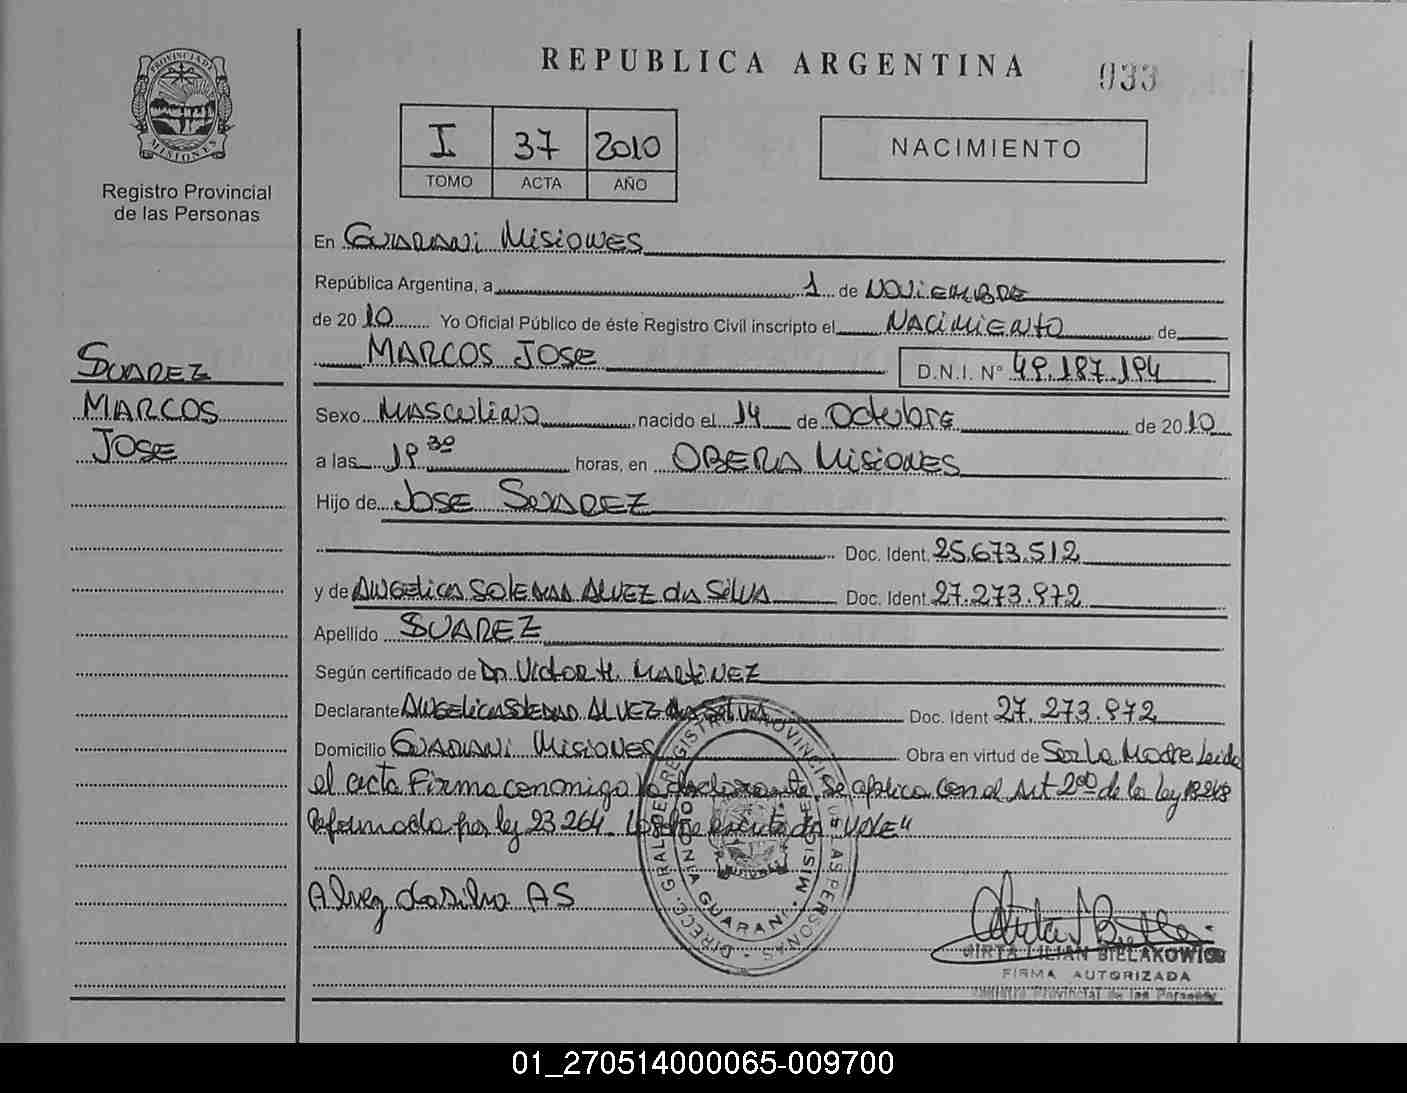 PROVINCIA DE
MISIONES
Registro Provincial
de las Personas
SUAREZ
MARCOS
JOSE
REPUBLICA ARGENTINA
033
I 37 2010
TOMO ACTA AÑO
NACIMIENTO
En GUARANI MISIONES
República Argentina, a 1 de NOVIEMBRE
de 2010 Yo Oficial Público de éste Registro Civil inscripto el NACIMIENTO de
MARCOS JOSE D.N.I. N° 49.187.194
Sexo MASCULINO nacido el 14 de Octubre de 2010
a las 19 30 horas, en OBERA MISIONES
Hijo de JOSE SUAREZ
Doc. Ident. 25.673.512
y de ANGELICA SOLEDAD ALVEZ da SILVA Doc. Ident. 27.273.972
Apellido SUAREZ
Según certificado de Dr. VICTOR H. MARTINEZ
Declarante ANGELICA SOLEDAD ALVEZ da SILVA Doc. Ident 27.273.972
Domicilio GUARANI MISIONES Obra en virtud de Ser la Madre Leida
el acta Firma conmigo la declarante. Se aplica con el Art 2do de la Ley 18248
Reformada por ley 23 264. Lo sobre escrito da "VALE"
Alvez da silva AS
DIRECC. GRAL. DE REGISTRO PROVINCIAL DE LAS PERSONAS
GUARANI - MISIONES
MIRTA LILIAN BIELAKOWICZ
FIRMA AUTORIZADA
Registro Provincial de las Personas
01_270514000065-009700